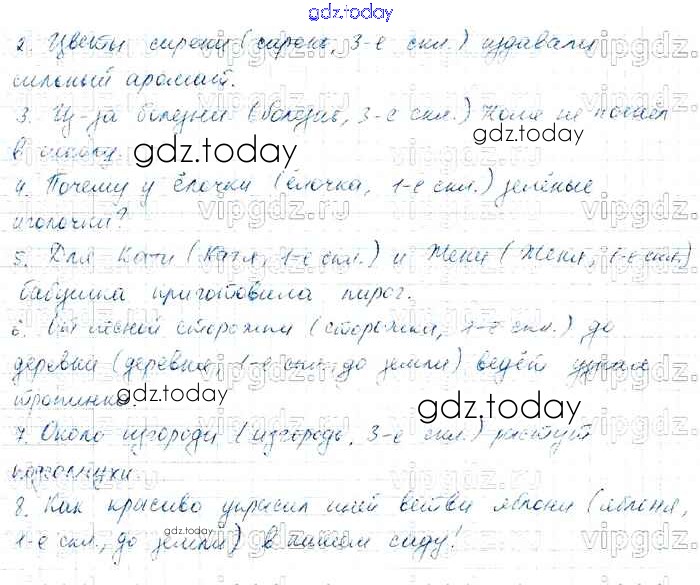 gdz.today
2. Цветы сирени (сирень, 3-е скл.) издавали
сильный аромат.
3. Из-за болезни (болезнь, 3-е скл.) Коля не пошёл
в школу.
gdz.today
gdz.today
4. Почему у ёлочки (ёлочка, 1-е скл.) зелёные
иголочки?
5. Для Кати (Катя, 1-е скл.) и Жени (Женя, 1-е скл.)
бабушка приготовила пирог.
6. От лесной сторожки (сторожка, 1-е скл.) до
деревни (деревня, 1-е скл., до земли) ведёт узкая
тропинка.
gdz.today
gdz.today
7. Около изгороди (изгородь, 3-е скл.) растут
8. Как красиво украсил иней ветви яблони (яблоня,
1-е скл., до земли) в нашем саду!
gdz.today
gdz.today
vipgdz.ru